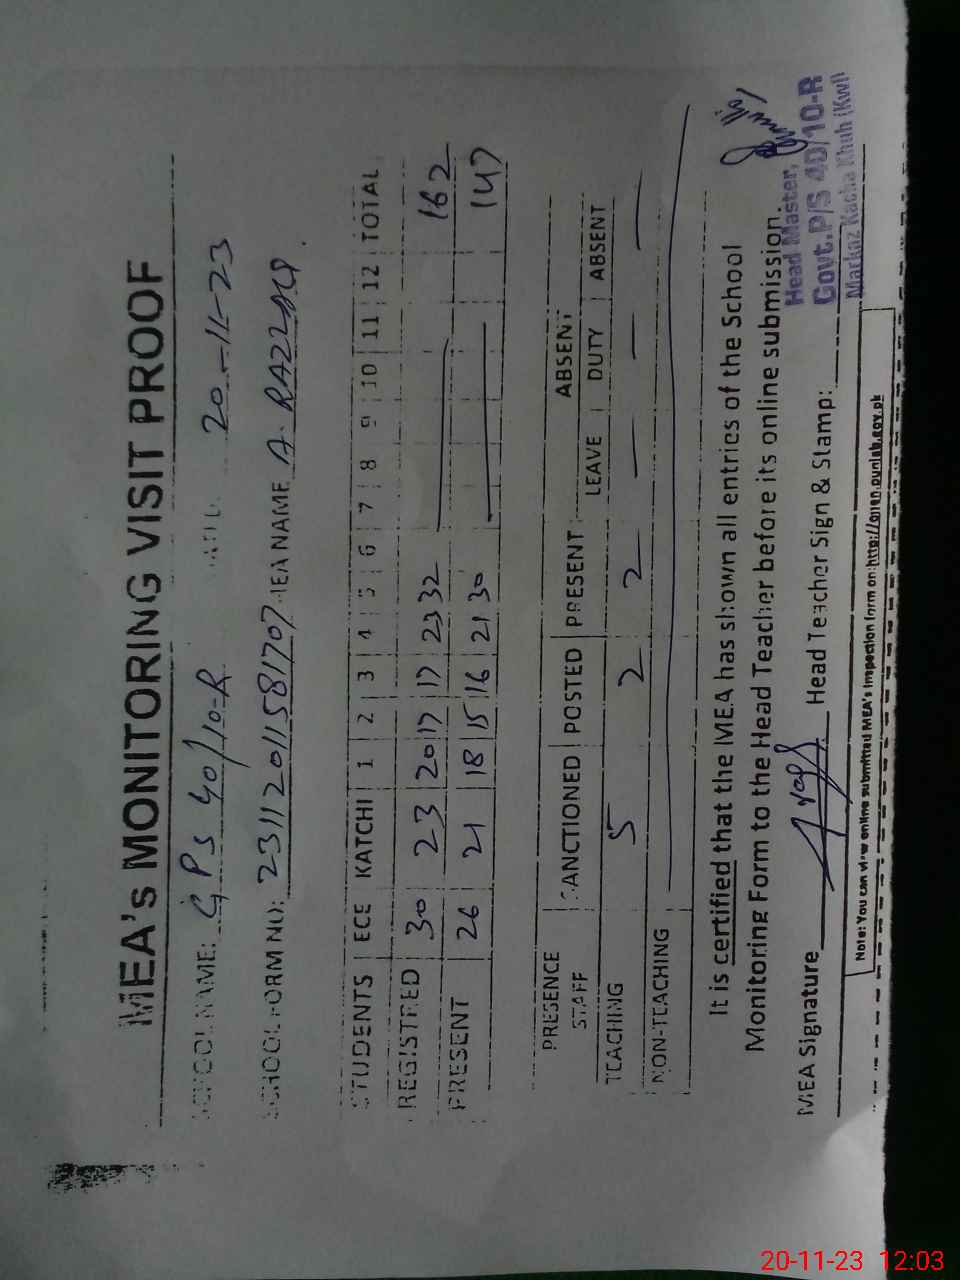 MEA's MONITORING VISIT PROOF
SCHOOL NAME: GPS 40/10-R DATE 20-11-23
SCHOOL FORM NO: 231112011581707 MEA NAME A. RAZZAQ
STUDENTS | ECE | KATCHI | 1 | 2 | 3 | 4 | 5 | 6 | 7 | 8 | 9 | 10 | 11 | 12 | TOTAL
REGISTRED | 30 | 23 | 20 | 17 | 17 | 23 | 32 | 162
PRESENT | 26 | 21 | 18 | 15 | 16 | 21 | 30 | 147
PRESENCE ABSENT
STAFF SANCTIONED POSTED PRESENT LEAVE DUTY ABSENT
TEACHING 5 2 2 — — —
NON-TEACHING
It is certified that the MEA has shown all entries of the School
Monitoring Form to the Head Teacher before its online submission.
Head Master,
Govt.P/S 40/10-R
Markaz Kacha Khuh (Kwl)
MEA Signature Head Teacher Sign & Stamp:
Note: You can view online submitted MEA's inspection form on:http://open.punjab.gov.pk
20-11-23 12:03